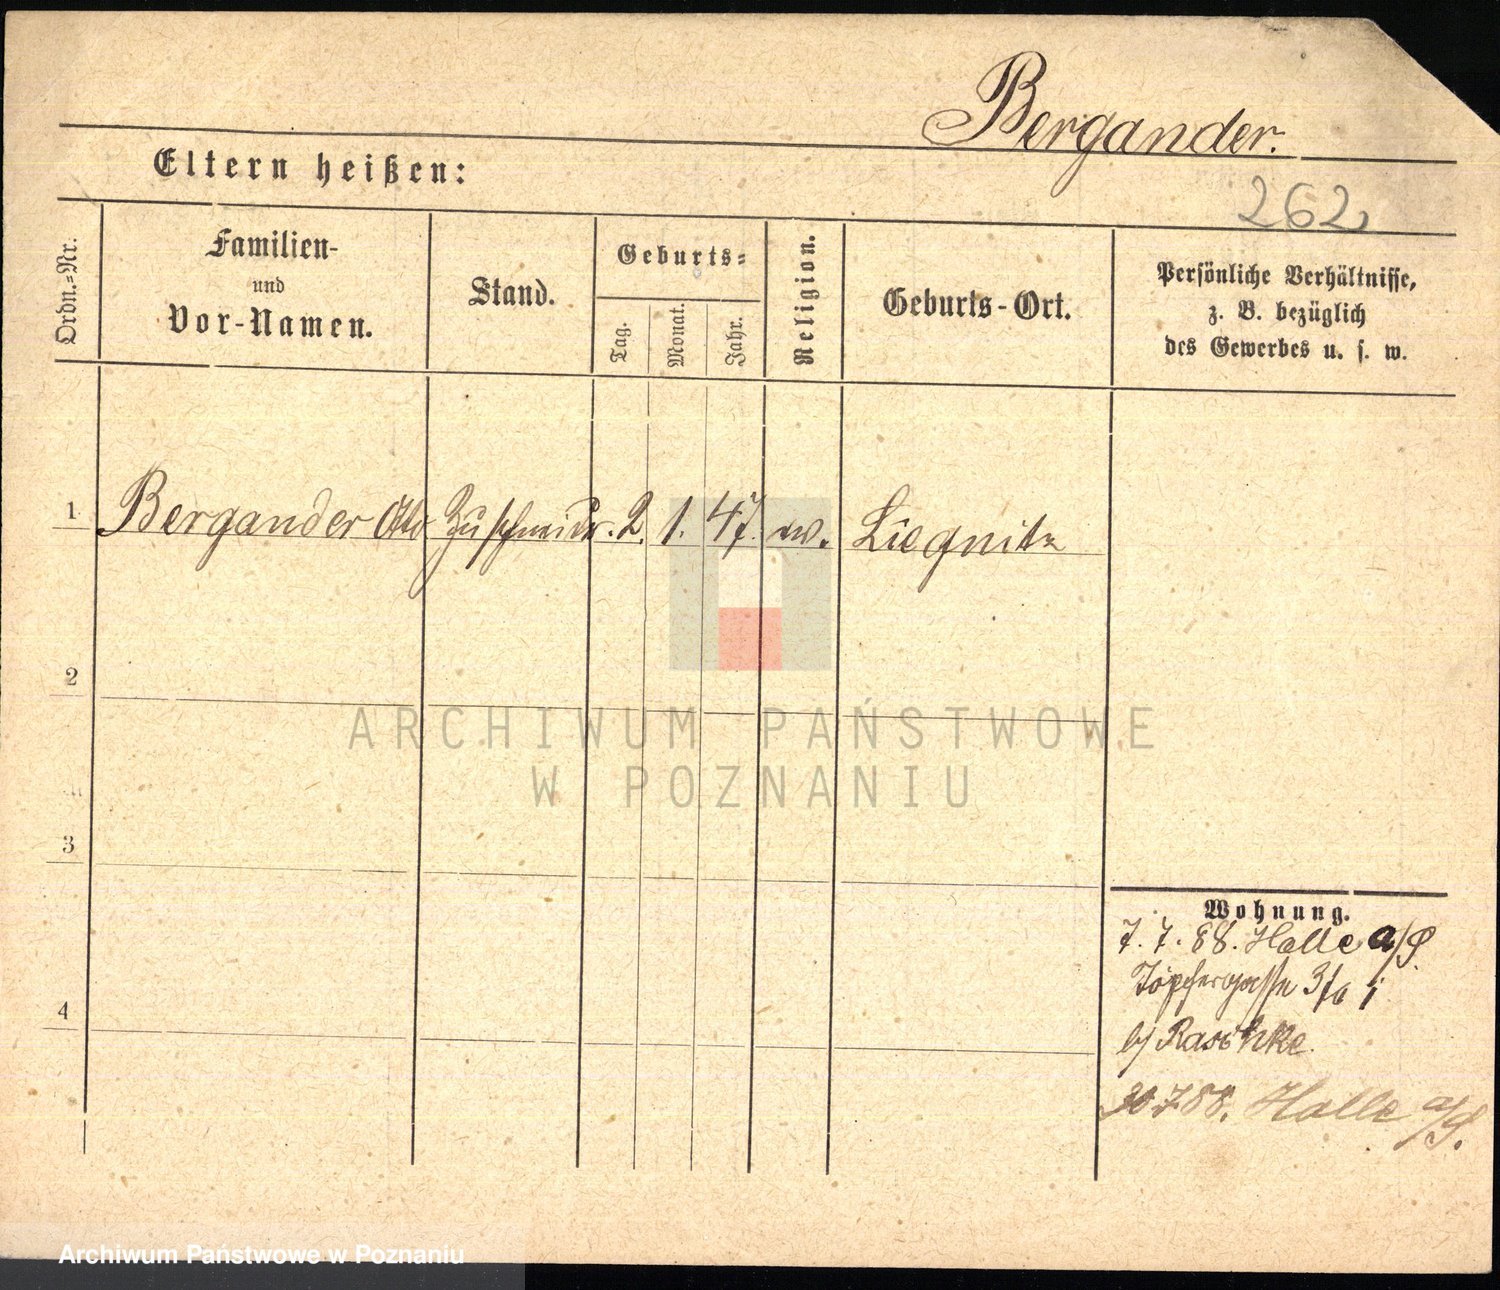 Bergander.
Eltern heißen:
262
Ordn.=Nr.
Familien-
und
Vor-Namen.
Stand.
Geburts=
Tag.
Monat.
Jahr.
Religion.
Geburts-Ort.
Persönliche Verhältnisse,
z. B. bezüglich
des Gewerbes u. s. w.
1 Bergander Otto Zuschneider. 2. 1. 47. ev. Liegnitz
2
ARCHIWUM PAŃSTWOWE
W POZNANIU
3
Wohnung.
7. 7. 88. Halle a/S.
Töpfergasse
b/ Raschke.
4
30 7 88. Halle a/S.
Archiwum Państwowe w Poznaniu